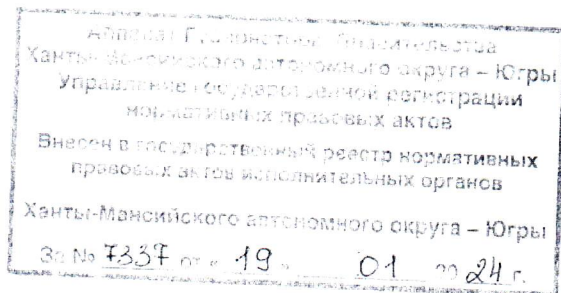 Аппарат Губернатора, Правительства
Ханты-Мансийского автономного округа – Югры
Управление государственной регистрации
нормативных правовых актов
Внесен в государственный реестр нормативных
правовых актов исполнительных органов
Ханты-Мансийского автономного округа – Югры
За № 7337 от « 19 » 01 20 24 г.